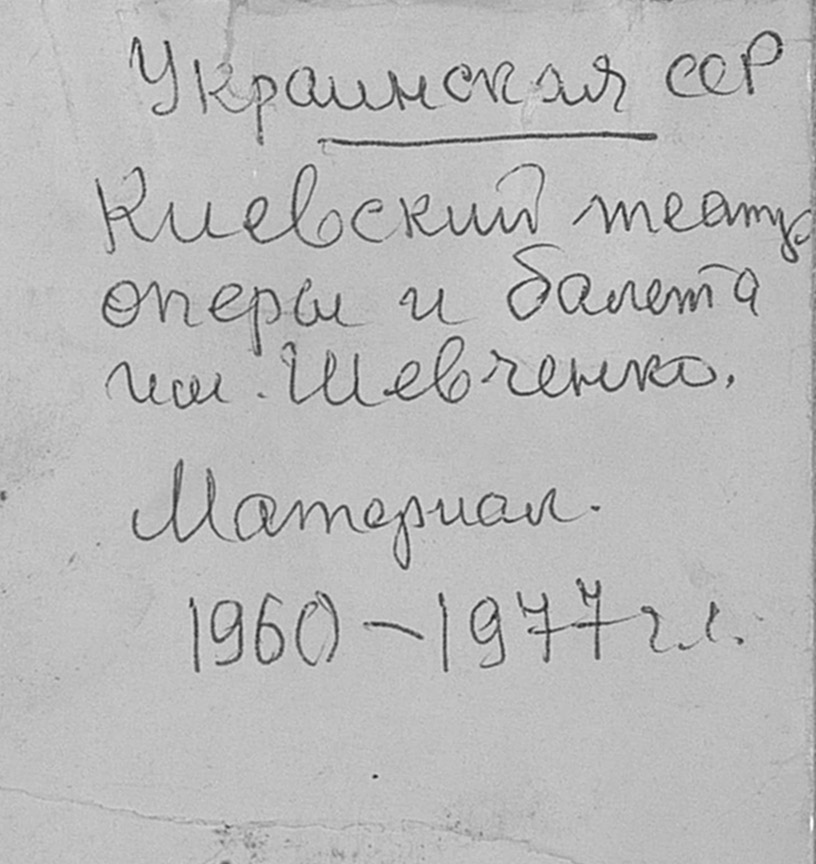 Украинская ССР
Киевский театр
оперы и балета
им. Шевченко.
Материал.
1960-1977 г.г.